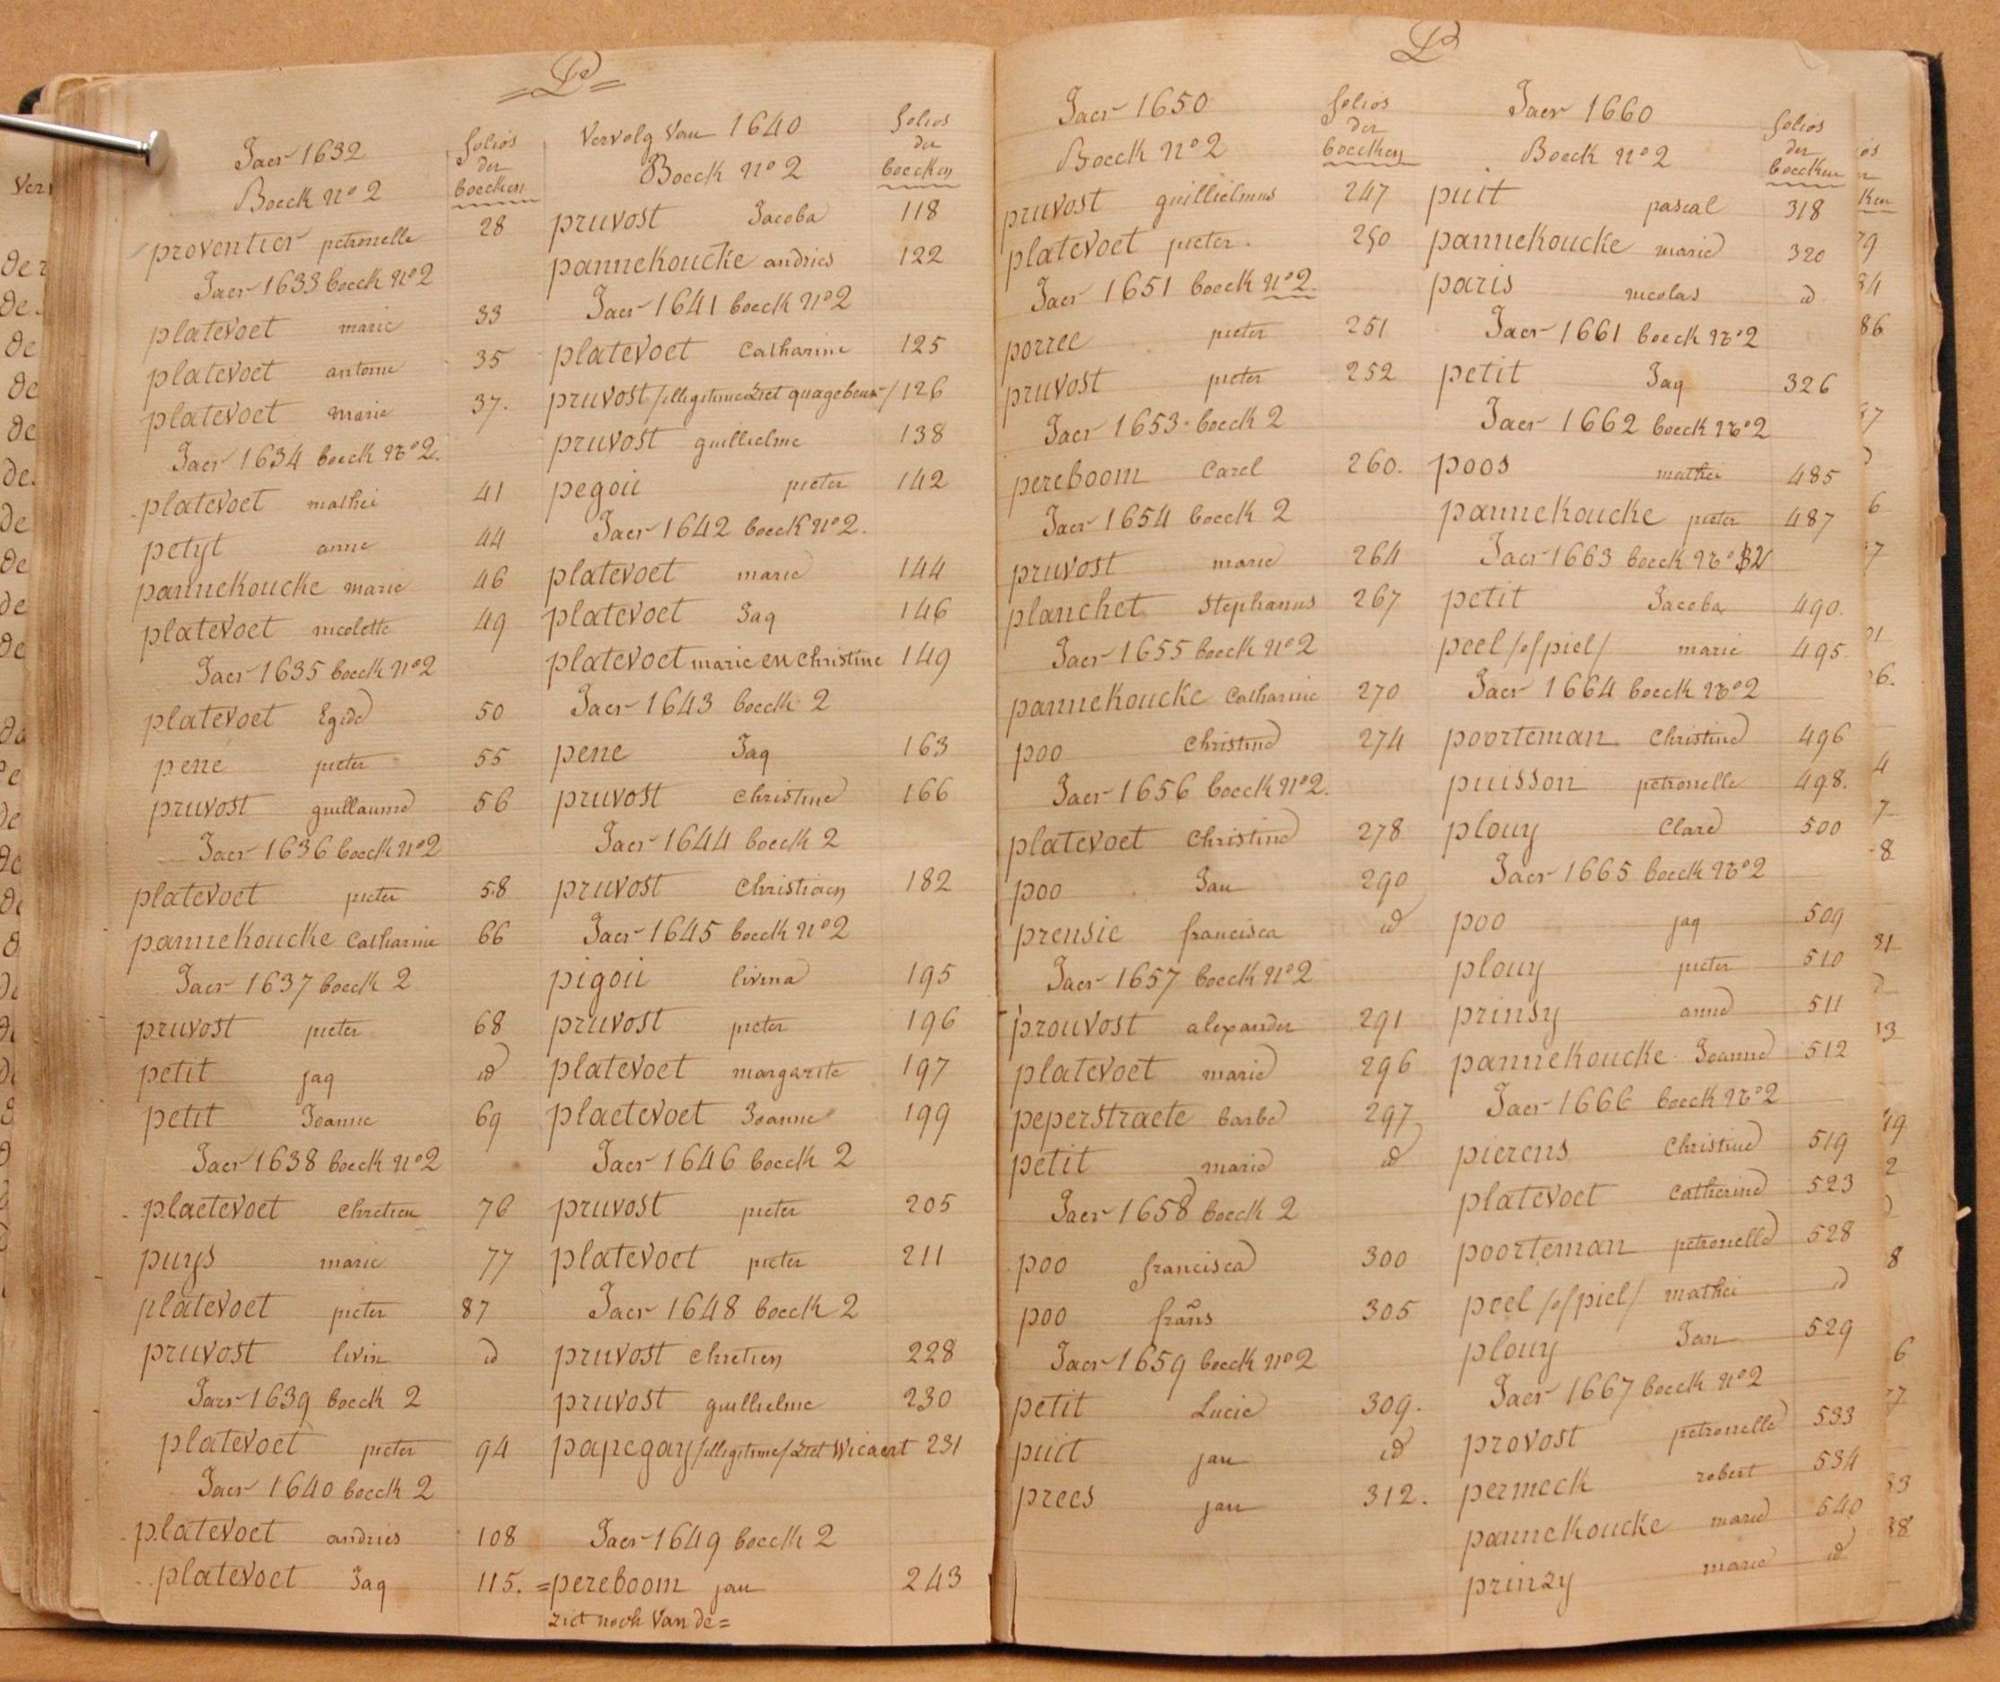 P
Jaer 1632
folios
der
boecken
Boeck No 2
proventier petronelle 28
Jaer 1633 boeck No 2
platevoet marie 33
platevoet antoine 35
platevoet marie 37.
Jaer 1634 boeck No 2.
platevoet mathei 41
petyt anne 44
pannekoucke marie 46
platevoet nicolette 49
Jaer 1635 boeck No 2
platevoet Egide 50
pene pieter 55
pruvost guillaume 56
Jaer 1636 boeck No 2
platevoet pieter 58
pannekoucke Catharine 66
Jaer 1637 boeck 2
pruvost pieter 68
petit jaq id
petit Joanne 69
Jaer 1638 boeck No 2
plaetevoet chretien 76
puys marie 77
platevoet pieter 87
pruvost livin id
Jaer 1639 boeck 2
platevoet pieter 94
Jaer 1640 boeck 2
platevoet andries 108
platevoet Jaq 115.
Vervolg Van 1640
folios
der
boecken
Boeck No 2
pruvost Jacoba 118
pannekoucke andries 122
Jaer 1641 boeck No 2
platevoet Catharine 125
pruvost /illegitime Ziet quagebeur/ 126
pruvost guillielme 138
pegoii pieter 142
Jaer 1642 boeck No 2.
platevoet marie 144
platevoet Jaq 146
platevoet marie en christine 149
Jaer 1643 boeck 2
pene Jaq 163
pruvost christine 166
Jaer 1644 boeck 2
pruvost Christiaen 182
Jaer 1645 boeck No 2
pigoii livina 195
pruvost pieter 196
platevoet margarite 197
plaetevoet Joanne 199
Jaer 1646 boeck 2
pruvost pieter 205
platevoet pieter 211
Jaer 1648 boeck 2
pruvost chretien 228
pruvost guillielme 230
papegay /illegitime/ Ziet Wicaert 231
Jaer 1649 boeck 2
=pereboom jan 243
ziet nook Van de=
P
Jaer 1650
folios
der
boecken
Boeck No 2
pruvost guilliëlmus 247
platevoet pieter. 250
Jaer 1651 boeck No 2.
porree pieter 251
pruvost pieter 252
Jaer 1653 boeck 2
pereboom Carel 260.
Jaer 1654 boeck 2
pruvost marie 264
planchet Stephanus 267
Jaer 1655 boeck No 2
pannekoucke Catharine 270
poo Christine 274
Jaer 1656 boeck No 2.
platevoet Christine 278
poo Jan 290
prensie francisca id
Jaer 1657 boeck No 2
prouvost alexander 291
platevoet marie 296
peperstraete barbe 297
petit marie id
Jaer 1658 boeck 2
poo francisca 300
poo frans 305
Jaer 1659 boeck No 2
petit Lucie 309.
puit jan id
prees jan 312.
Jaer 1660
folios
der
boecken
Boeck No 2
puit pascal 318
pannekoucke marie 320
paris nicolas id
Jaer 1661 boeck No 2
petit Jaq 326
Jaer 1662 boeck No 2
poos mathei 485
pannekoucke pieter 487
Jaer 1663 boeck No 2
petit Jacoba 490.
peel /of piel/ marie 495.
Jaer 1664 boeck No 2
poorteman Christine 496
puisson petronelle 498.
plouy Clare 500
Jaer 1665 boeck No 2
poo jaq 509
plouy pieter 510
prinsy anne 511
pannekoucke Joanne 512
Jaer 1666 boeck No 2
pierens Christine 519
platevoet Catherine 523
poorteman petronelle 528
peel /of piel/ mathei id
plouy Jan 529
Jaer 1667 boeck No 2
provost petronelle 533
permeck robert 534
pannekoucke marie 540
prinzy marie id